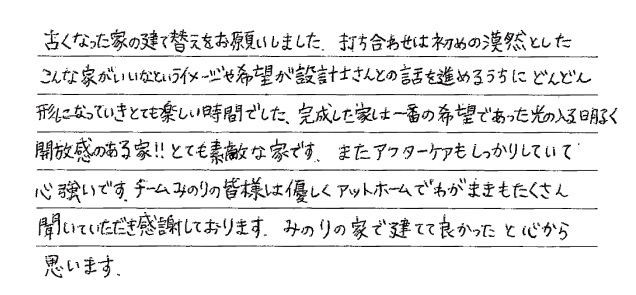 古くなった家の建て替えをお願いしました。打ち合わせは初めの漠然とした
こんな家がいいなというイメージや希望が設計士さんとの話を進めるうちにどんどん
形になっていきとても楽しい時間でした、完成した家は一番の希望であった光の入る明るく
開放感のある家!!とても素敵な家です。またアフターケアもしっかりしていて
心強いです。チームみのりの皆様は優しくアットホームでわがままもたくさん
聞いていただき感謝しております。みのりの家で建てて良かったと心から
思います。